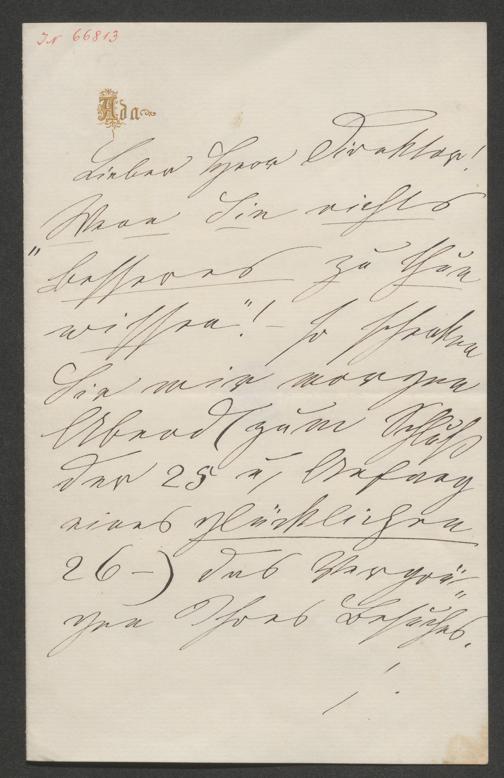 IN 66813
Ada
Lieber Herr Direktor!
"Wenn Sie nichts
besseres zu thun
wissen"! – so schenken
Sie mir morgen
Abend (zum Schluß
der 25 u, Anfang
eines glücklichen
26–) das Vergnü-
gen Ihres Besuches.
!